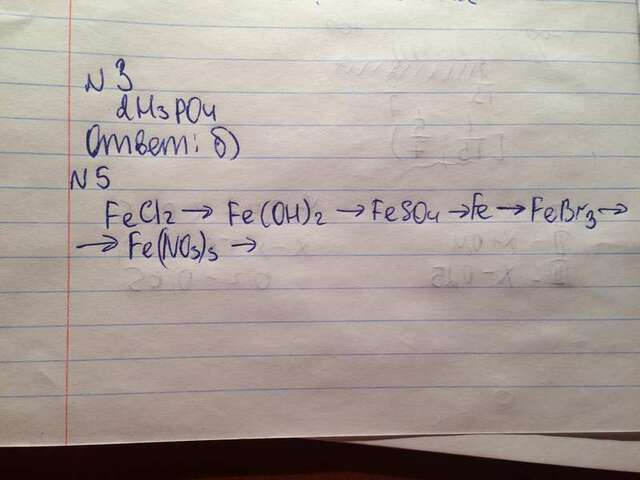 N 3
2H3PO4
Ответ: б)
N 5
FeCl2 → Fe(OH)2 → FeSO4 → Fe → FeBr3 →
→ Fe(NO3)3 →